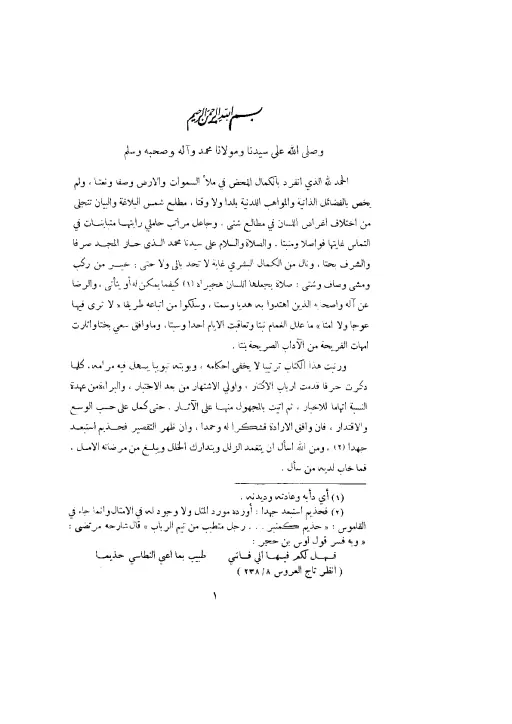 بسم الله الرحمن الرحيم
وصلى الله على سيدنا ومولانا محمد وآله وصحبه وسلم
الحمد لله الذي انفرد بالكمال المحض في ملأ السموات والارض وصفا ونعتا ، ولم
يخص بالفضائل الذاتية والمواهب اللدنية بلدا ولا وقتا ، مطلع شمس البلاغة والبيان تتجلى
من اختلاف أغراض اللسان في مطالع شتى . وجاعل مراتب حاملي رايتها متباينات في
التماس غايتها فواصلا ومنبتا . والصلاة والسلام على سيدنا محمد الذي حاز المجد صرفا
والشرف بحتا ، ونال من الكمال البشري غاية لا تحد بالى ولا حتى : خير من ركب
ومشى وصاف وشتى : صلاة يجعلها اللسان هجيراه (١) كيفما يمكن له أو يتأتى ، والرضا
عن آله واصحابه الذين اهتدوا به هديا وسمتا ، وسلكوا من اتباعه طريقا « لا ترى فيها
عوجا ولا أمتا » ما علل الغمام نبتا وتعاقبت الايام احدا وسبتا ، وما وافق سعي بختا وأثارت
امهات القريحة من الآداب الصريحة بنتا .
ورتبت هذا الكتاب ترتيبا لا يخفى احكامه ، وبوبته تبويبا يسهل فيه مرامه ، كلما
ذكرت حرفا قدمت ارباب الاكثار ، واولي الاشتهار من بعد الاختبار ، والبراءة من عهدة
النسبة اتهاما للاخبار ، ثم اتيت بالمجهول منها على الآثار . حتى كمل على حسب الوسع
والاقتدار ، فان وافق الارادة فشكرا له وحمدا ، وان ظهر التقصير فحذيم استبعد
جهدا (٢) ، ومن الله أسأل ان يتغمد الزلل ويتدارك الخلل ويبلغ من مرضاته الامل .
فما خاب لديه من سأل .
(١) أي دأبه وعادته وديدنه .
(٢) فحذيم استبعد جهدا : أورده مورد المثل ولا وجود له في الامثال وانما جاء في
القاموس : « حذيم كمنبر . . . رجل متطبب من تيم الرباب » قال شارحه مرتضى :
« وبه فسر قول اوس بن حجر :
فهل لكم فيها الي فانني طبيب بما اعيى النطاسي حذيما
( انظر تاج العروس ٨/ ٢٣٨ )
١